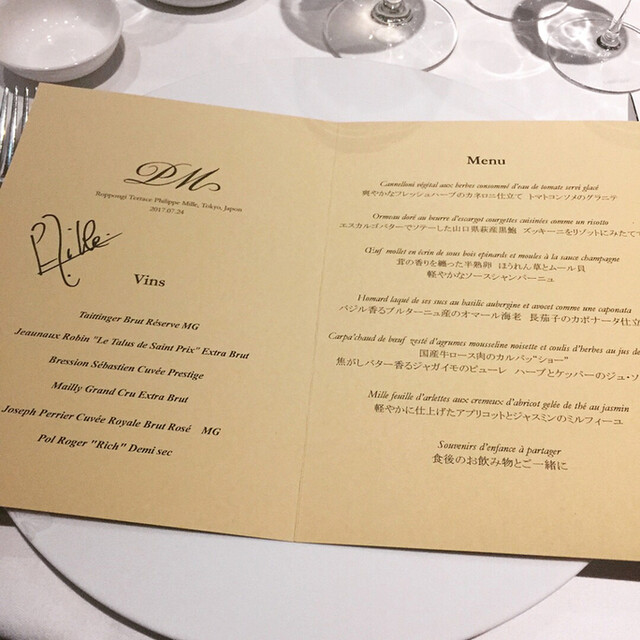 PM
Roppongi Terrace Philippe Mille, Tokyo, Japon
2017.07.24
P. Mille
Vins
Taittinger Brut Réserve MG
Jeaunaux Robin "Le Talus de Saint Prix" Extra Brut
Bression Sébastien Cuvée Prestige
Mailly Grand Cru Extra Brut
Joseph Perrier Cuvée Royale Brut Rosé MG
Pol Roger "Rich" Demi sec
Menu
Cannelloni végétal aux herbes consommé d'eau de tomate servi glacé
爽やかなフレッシュハーブのカネロニ仕立て トマトコンソメのグラニテ
Ormeau doré au beurre d'escargot courgettes cuisinées comme un risotto
エスカルゴバターでソテーした山口県萩産黒鮑 ズッキーニをリゾットにみたてて
Œuf mollet en écrin de sous bois epinards et moules à la sauce champagne
茸の香りを纏った半熟卵 ほうれん草とムール貝
軽やかなソースシャンパーニュ
Homard laqué de ses sucs au basilic aubergine et avocet comme une caponata
バジル香るブルターニュ産のオマール海老 長茄子のカポナータ仕立
Carpa'chaud de bœuf zesté d'agrumes mousseline noisette et coulis d'herbes au jus de
国産牛ロース肉のカルパッ"ショー"
焦がしバター香るジャガイモのピューレ ハーブとケッパーのジュ・ソ
Mille feuille d'arlettes aux cremeux d'abricot gelée de thé au jasmin
軽やかに仕上げたアプリコットとジャスミンのミルフィーユ
Souvenirs d'enfance à partager
食後のお飲み物とご一緒に